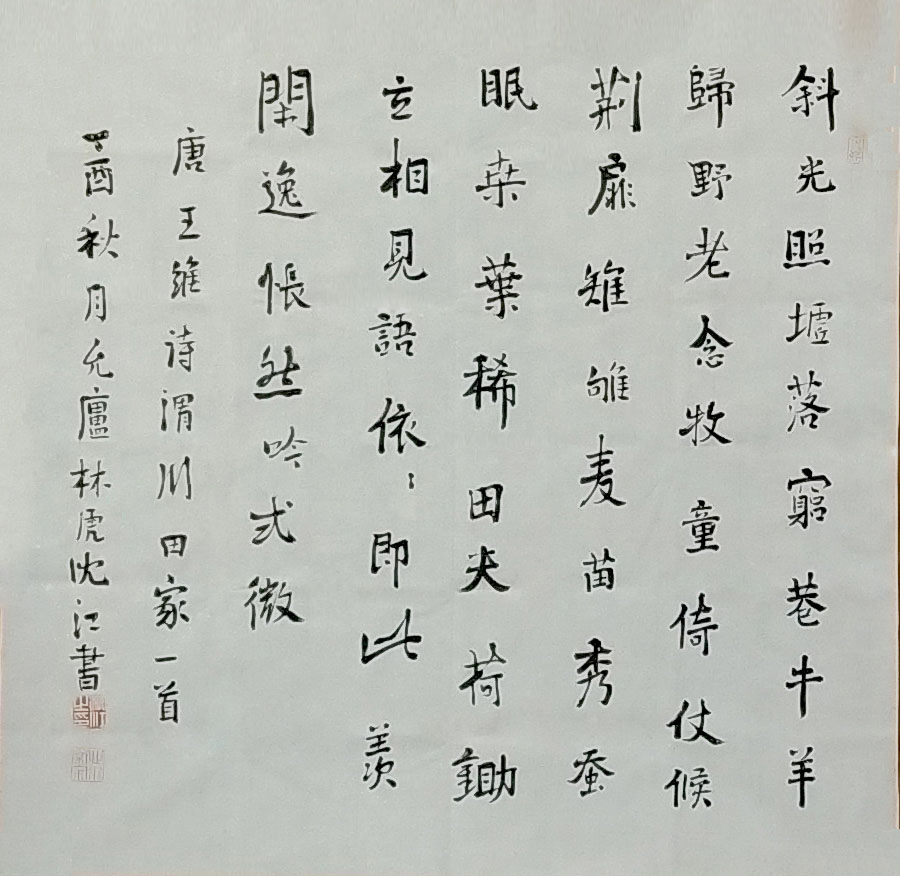 斜光照墟落窮巷牛羊
歸野老念牧童倚仗候
荊扉雉雊麦苗秀蚕
眠桒葉稀田夫荷鋤
立相見語依〻即此羨
閑逸悵然吟式微
唐王維诗渭川田家一首
丁酉秋月廬林虎沈江書